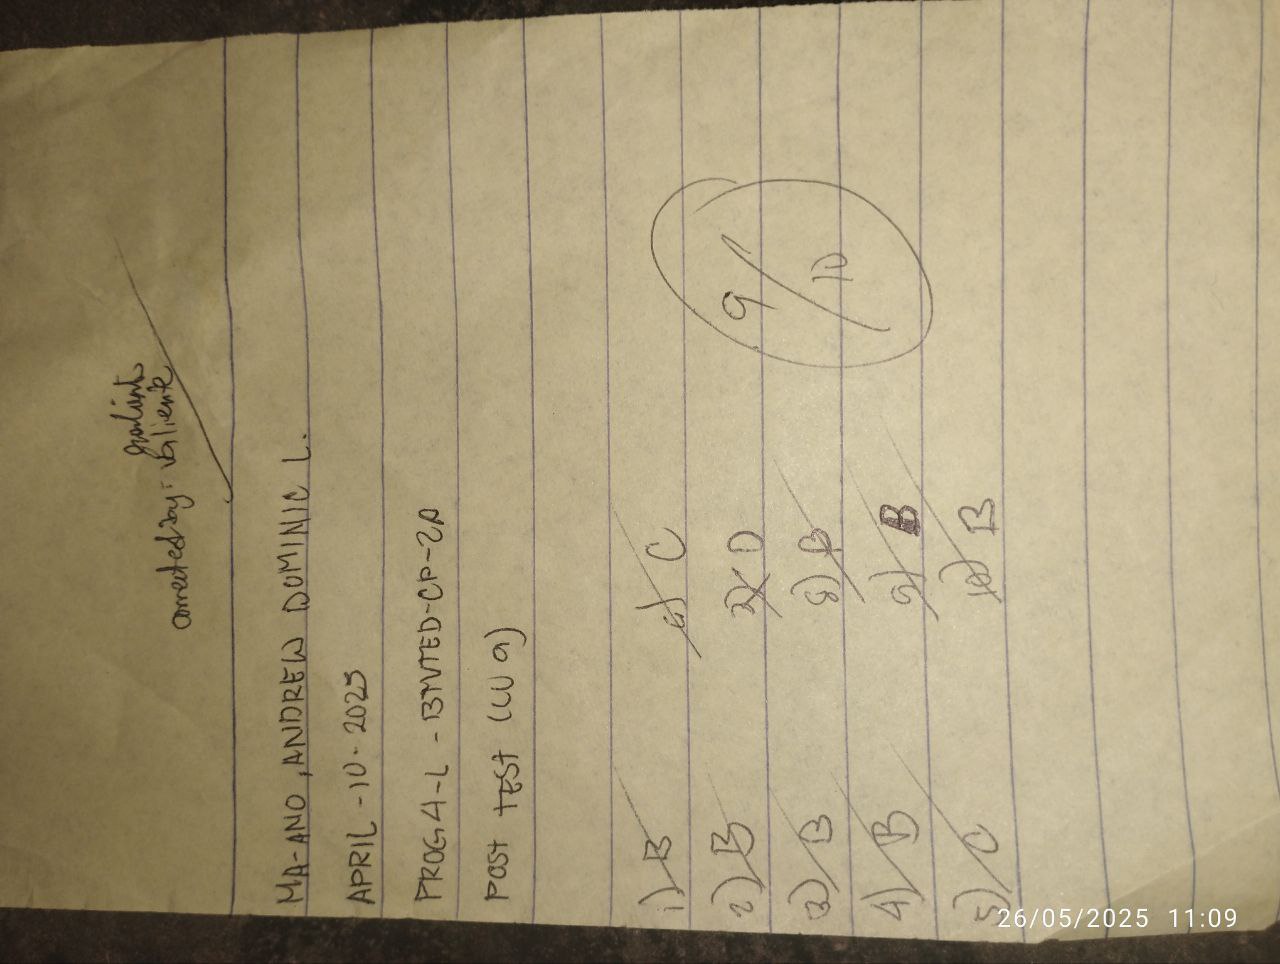 corrected by: Valiente
MA-ANO, ANDREW DOMINIC L.
APRIL -10- 2025
PROG4-L - BTVTED-CP-2A
POST TEST (LU 9)
1) B
2) B
3) B
4) B
5) C
6) C
7) D
8) B
9) B
10) B
9/10
26/05/2025 11:09